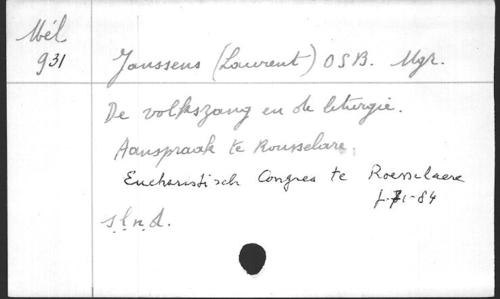 Mél
931
Janssens (Laurent) OSB. Mgr.
De volkszang en de liturgie.
Aanspraak te Rousselare.
Eucharistisch Congres te Roesselaere
f. 71-84
s.l.n.d.